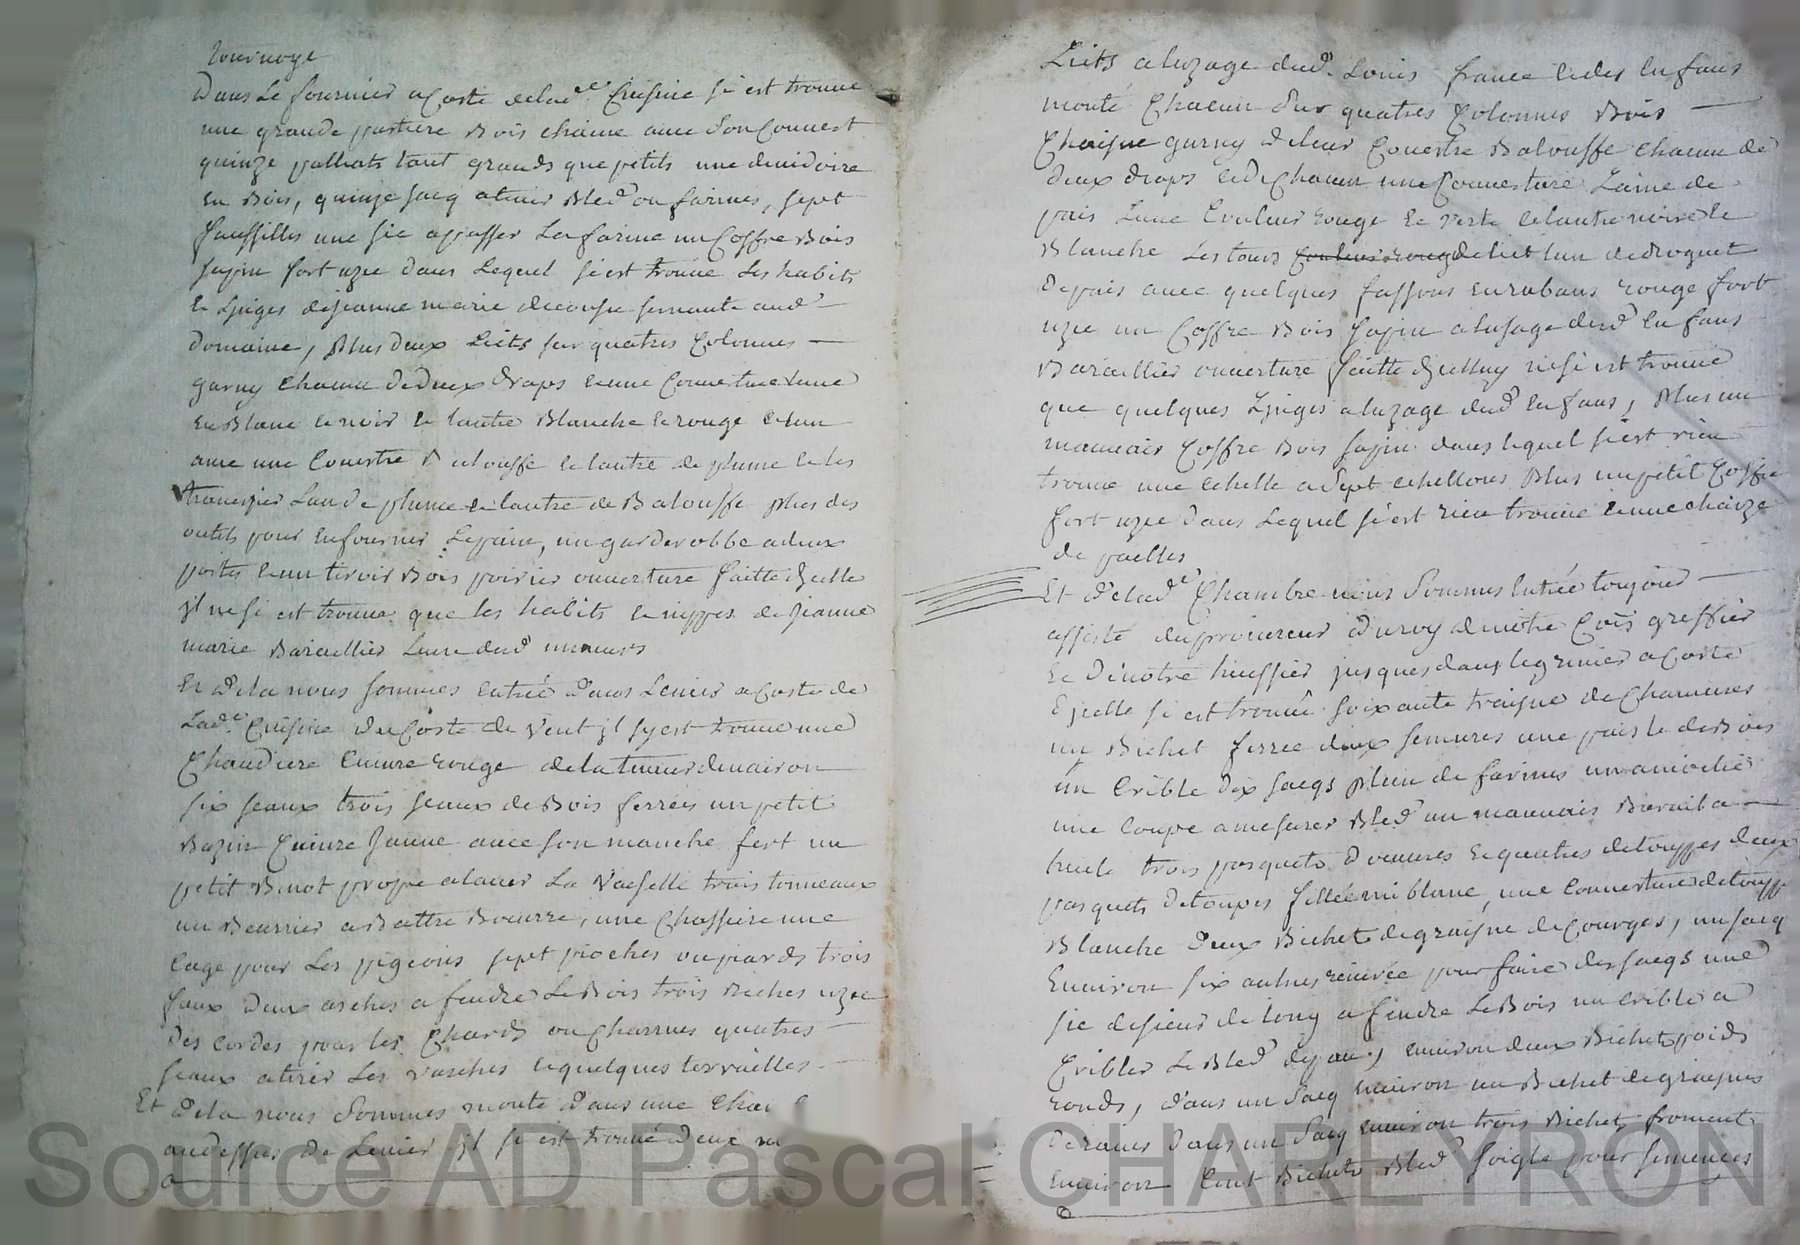 tournage
Dans Le fournier a Coste delade Cuisine si est trouvé
une grande pastiere Bois chaine avec Son Couvert
quinze palliats tant grands que petits une devidoire
en Bois, quinze sacq atenir Bled ou farines, sept
faussilles une sie apasser La farine un Coffre Bois
sapin fort uzée dans Lequel si est trouvé Les habits
et Linges dejeanne marie servante aud
domaine, Plus deux Licts sur quatres Colonnes
garny Chacun dedeux draps et une Couverture Lune
en Blanc et noir et lautre Blanche et rouge et lun
avec une Couestre Balouffe et lautre de plume et les
traversier Lun de plume et lautre de Balouffe plus des
outils pour enfourner Le pain, un garderobbe adeux
portes et un tiroir Bois poirier ouverture faitte dicelle
jl ne si est trouvé que les habits et nippes de Jeanne
marie Baraillier Lune dud mineurs
Et dela nous sommes entrée dans Levier a Coste de
Lade Cuisine du Coste de vent jl sy est trouvé une
Chaudiere Cuivre rouge delateneur denviron
six seaux trois seaux de Bois ferrées un petit
Bazin Cuivre Jaune avec son manche fert un
petit Benot propre alaver La Vaeselle trois tonneaux
un Beurrier aBattre Beurre, une Chassiere une
Cage pour Les pigeons sept pioches trois
faux deux aches a fendre Le Bois trois Beches uzée
Des Cordes pour les Chards ou Charrues quatres
seaux atirer Les vaches et quelques terrailles
Et dela nous Sommes monté dans une
audessus de Levier jl si est trouvé deux
Licts aluzage dud. Louis france et des Enfans
monté Chacun Sur quatres Colonnes Bois
Chaisne garny de leur Couestre Balouffe chacun de
deux draps et de Chacun une Couverture Laine de
pais Lune Couleur rouge et verte et lautre noire et
Blanche Les tours Couleur rouge de lict lun de droguet
de pais avec quelques fassons en rubans rouge fort
uzée un Coffre Bois Sapin alusage dud Enfans
Baraillier ouverture faitte dicelluy ne si est trouvé
que quelques Linges aluzage dud Enfans, Plus un
mauvais Coffre Bois sapin dans lequel si est rien
trouvé une echelle a Sept echellons Plus un petit Coffre
fort uzée dans Lequel si est rien trouvé et une chaize
de pailles
Et de lade Chambre nous Sommes Entrée toujour
assisté du procureur Du roy de notre Com greffier
et De notre huissier jusques dans le grenier a Costé
dicelle si est trouvé soixante traisne de Chanures
un Bichet ferrée deux semures une paisle de Bois
un Crible Dix sacqs plein de farines
une Coupe amesurer Bled un mauvais
huile trois pasquets d'euvres et quatres detouppes deux
pasquets Detouppes filléemiblanc, une Couverture de touppe
Blanche deux Bichets degraisne de Courges, un sacq
Environ six aulnes pour faire des sacqs une
sie desieur de long a fendre Le Bois un Crible a
Cribler Le Bled environ deux Bichets poids
ronds, dans un Sacq environ un Bichet de graisnes
de raves dans un Sacq environ trois Bichets froment
environ Cent Bichets Bled soigle pour semences
Source AD Pascal CHAREYRON